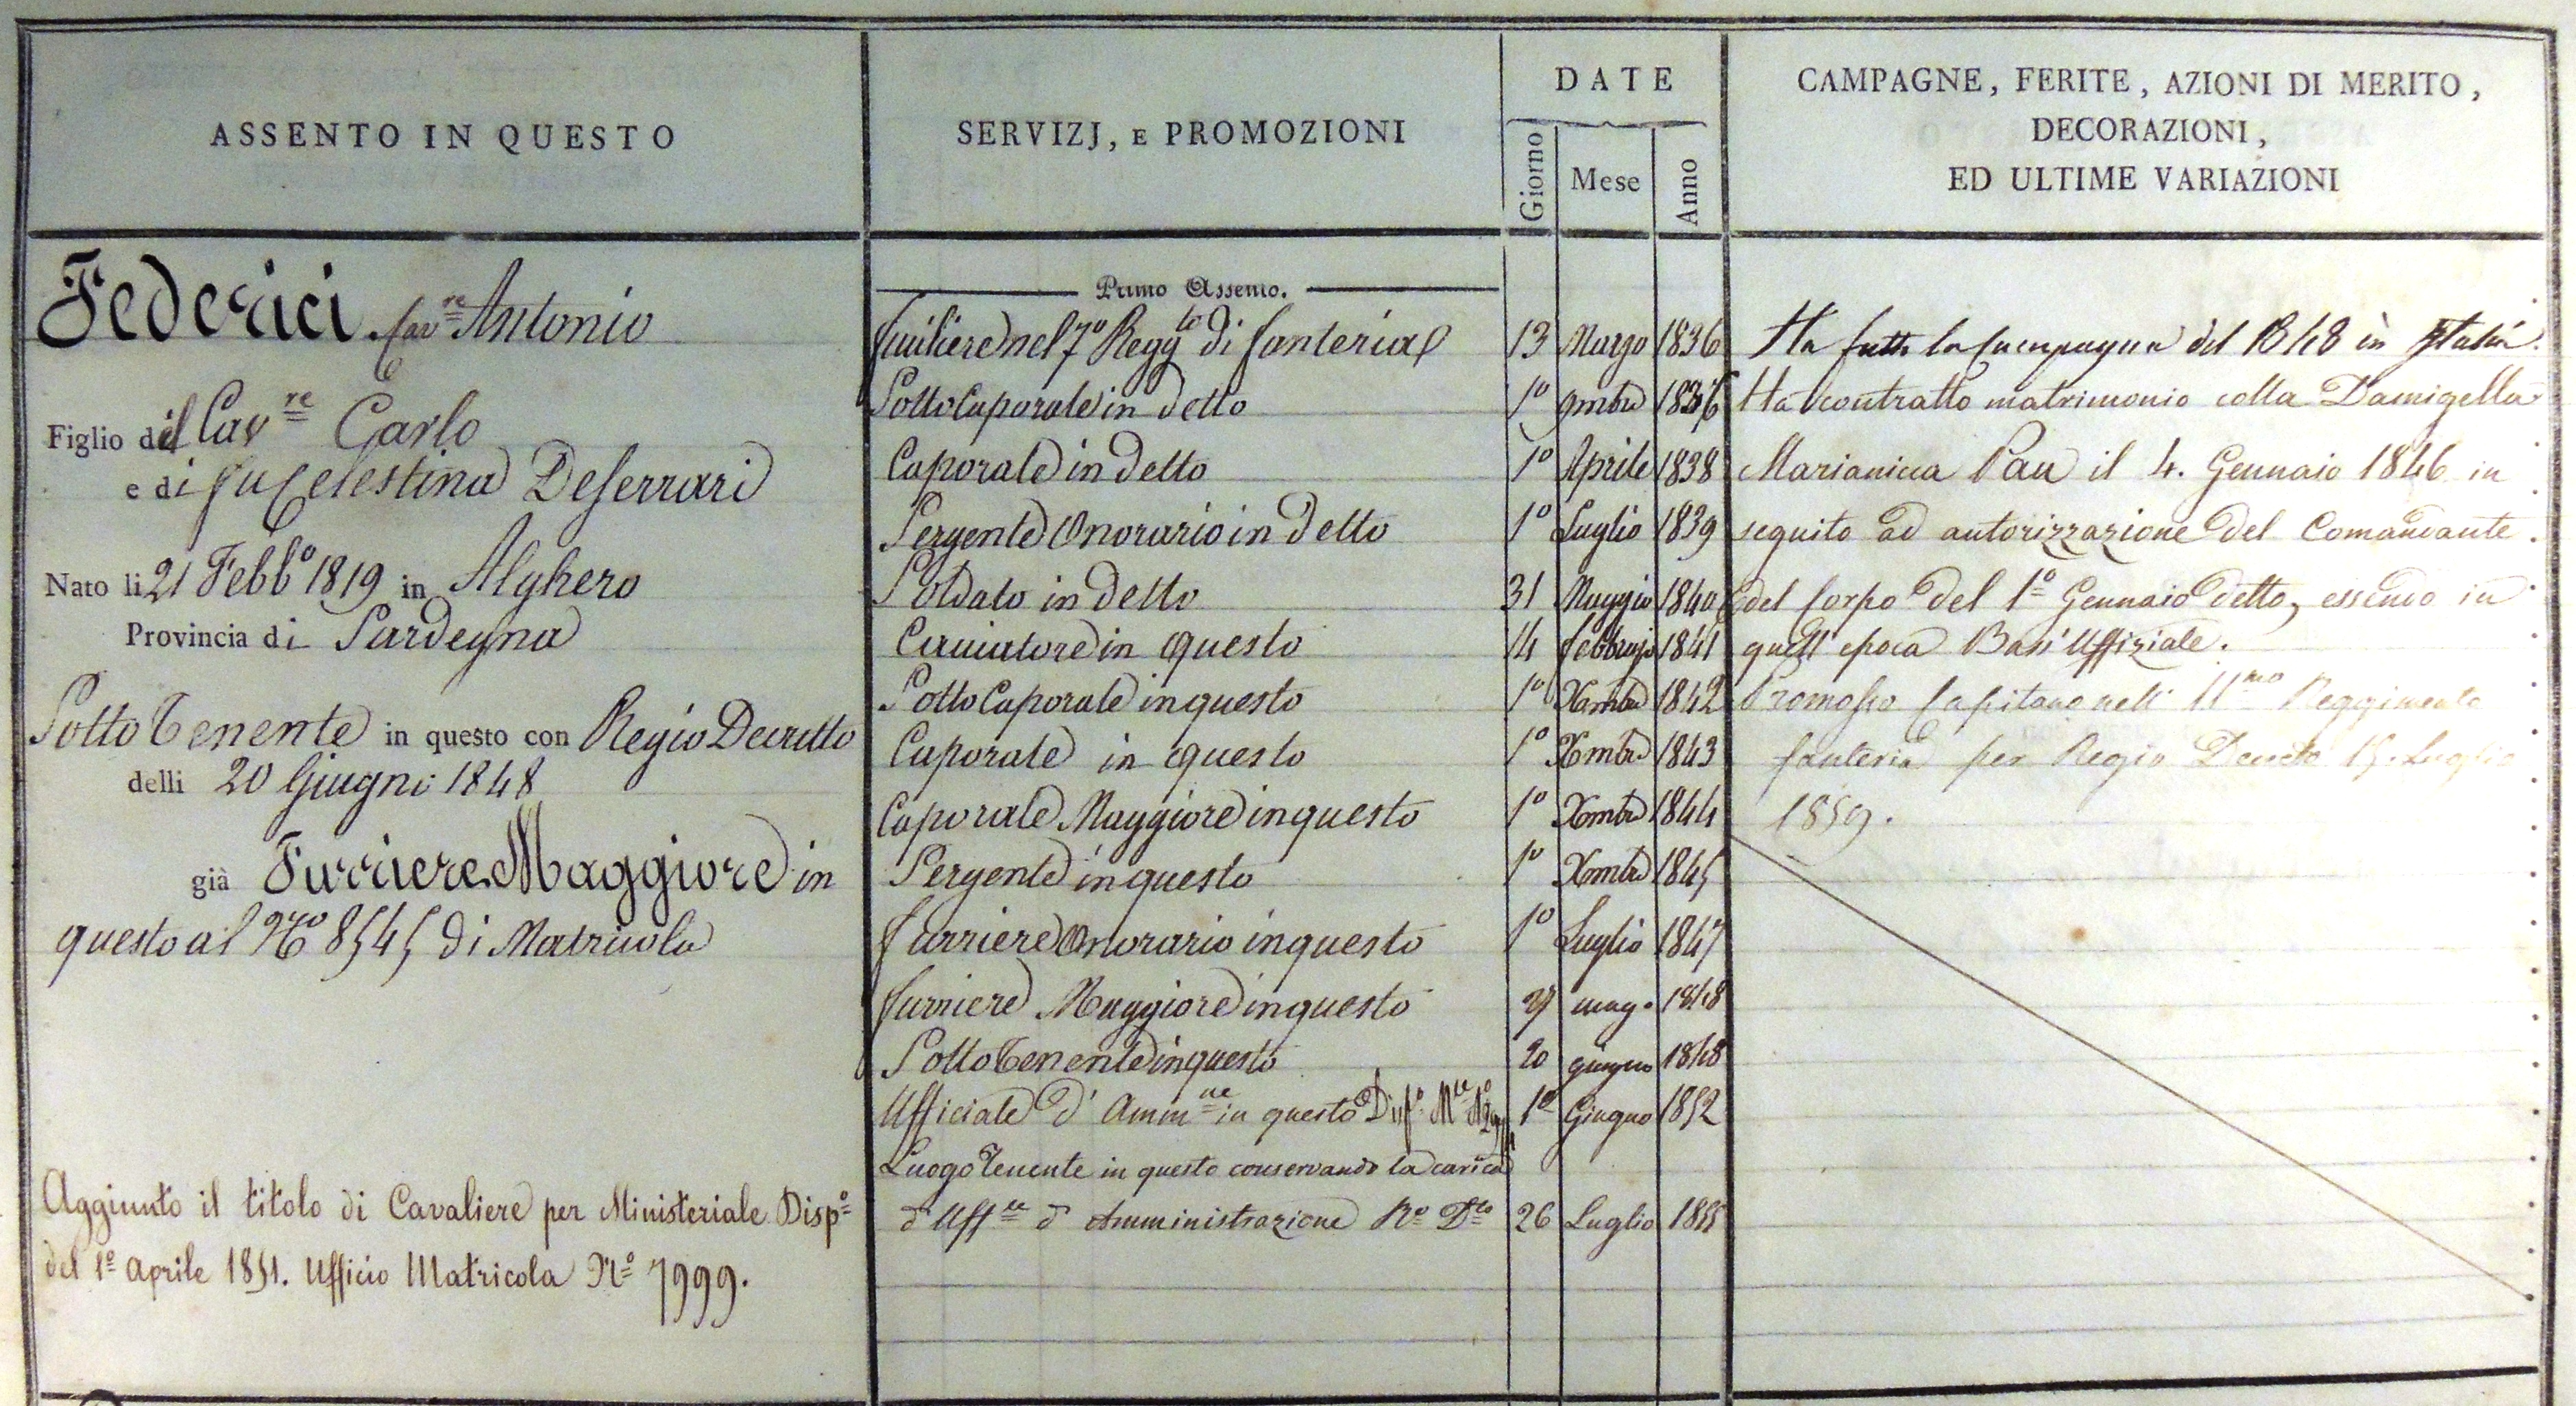 ASSENTO IN QUESTO
Federici Cav.re Antonio
Figlio del Cav.re Carlo
e di fu Celestina Deferrari
Nato li 21 Febb.o 1819 in Alghero
Provincia di Sardegna
Sotto Tenente in questo con Regio Decretto
delli 20 Giugno 1848
già Furriere Maggiore in
questo al No 8545 di Matricola
Aggiunto il titolo di Cavaliere per Ministeriale Disp.o
del 1o Aprile 1851. Ufficio Matricola No 7999.
SERVIZJ, E PROMOZIONI DATE Giorno Mese Anno
Primo Assento.
Fuciliere nel 7o Regg.to di fanteria 13 Marzo 1836
Sotto Caporale in detto 1o 9mbre 1836
Caporale in detto 1o Aprile 1838
Sergente Onorario in detto 1o Luglio 1839
Soldato in detto 31 Maggio 1840
Cacciatore in questo 14 febbrajo 1841
Sotto Caporale in questo 1o Xmbre 1842
Caporale in questo 1o Xmbre 1843
Caporale Maggiore in questo 1o Xmbre 1844
Sergente in questo 1o Xmbre 1845
furriere Onorario in questo 1o Luglio 1847
furriere Maggiore in questo 27 mag. 1848
Sotto Tenente in questo 20 giugno 1848
Ufficiale d'Amm.ne in questo 1o Giugno 1852
Luogo Tenente in questo conservando la carica
d'Uff.le d'Amministrazione Ro D.to 26 Luglio 1855
CAMPAGNE, FERITE, AZIONI DI MERITO,
DECORAZIONI,
ED ULTIME VARIAZIONI
Ha fatto la Campagna del 1848 in Italia.
Ha contratto matrimonio colla Damigella
Marianicca Pau il 4. Gennaio 1846 in
seguito ad autorizzazione del Comandante
del Corpo del 1o Gennaio detto, essendo in
quell'epoca Bass'Uffiziale.
Promosso Capitano nell' 11mo Reggimento
fanteria per Regio Decreto 15. Luglio
1859.